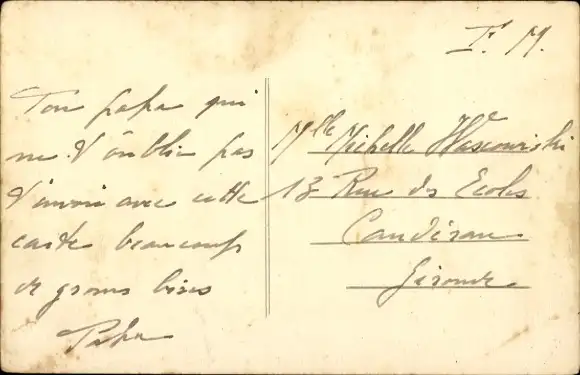 F. M.
Ton papa qui
ne t'oublie pas
t'envoie avec cette
carte beaucoup
de grosses bises
Papa
Mlle Michelle
13 Rue des Ecoles
Caudéran
Gironde